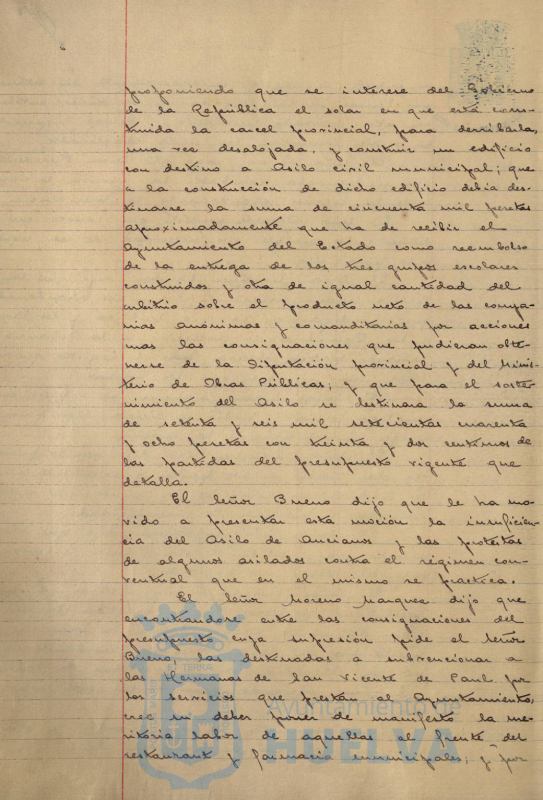 proponiendo que se interese del Gobierno
de la República el solar en que está cons-
truida la carcel provincial, para derribarla,
una vez desalojada, y construir un edificio
con destino a Asilo civil municipal; que
a la construcción de dicho edificio debia des-
tinarse la suma de cincuenta mil pesetas
aproximadamente que ha de recibir el
Ayuntamiento del Estado como reembolso
de la entrega de los tres grupos escolares
construidos y otra de igual cantidad del
arbitrio sobre el producto neto de las compa-
ñias anónimas y comanditarias por acciones
mas las consignaciones que pudieran obte-
nerse de la Diputación provincial y del Minis-
terio de Obras Públicas; y que para el soste-
nimiento del Asilo se destinara la suma
de setenta y seis mil setecientas cuarenta
y ocho pesetas con treinta y dos centimos de
las partidas del presupuesto vigente que
detalla.
El señor Bueno dijo que le ha mo-
vido a presentar esta moción la insuficien-
cia del Asilo de Ancianos y las protestas
de algunos asilados contra el régimen con-
ventual que en el mismo se practica.
El señor Moreno Marquez dijo que
encontrandose entre las consignaciones del
presupuesto cuya supresión pide el señor
Bueno, las destinadas a subvencionar a
las Hermanas de San Vicente de Paul por
los servicios que prestan al Ayuntamiento,
cree un deber poner de manifiesto la me-
ritoria labor de aquellas al frente del
restaurant y farmacia municipales; y por
Ayuntamiento de
HUELVA